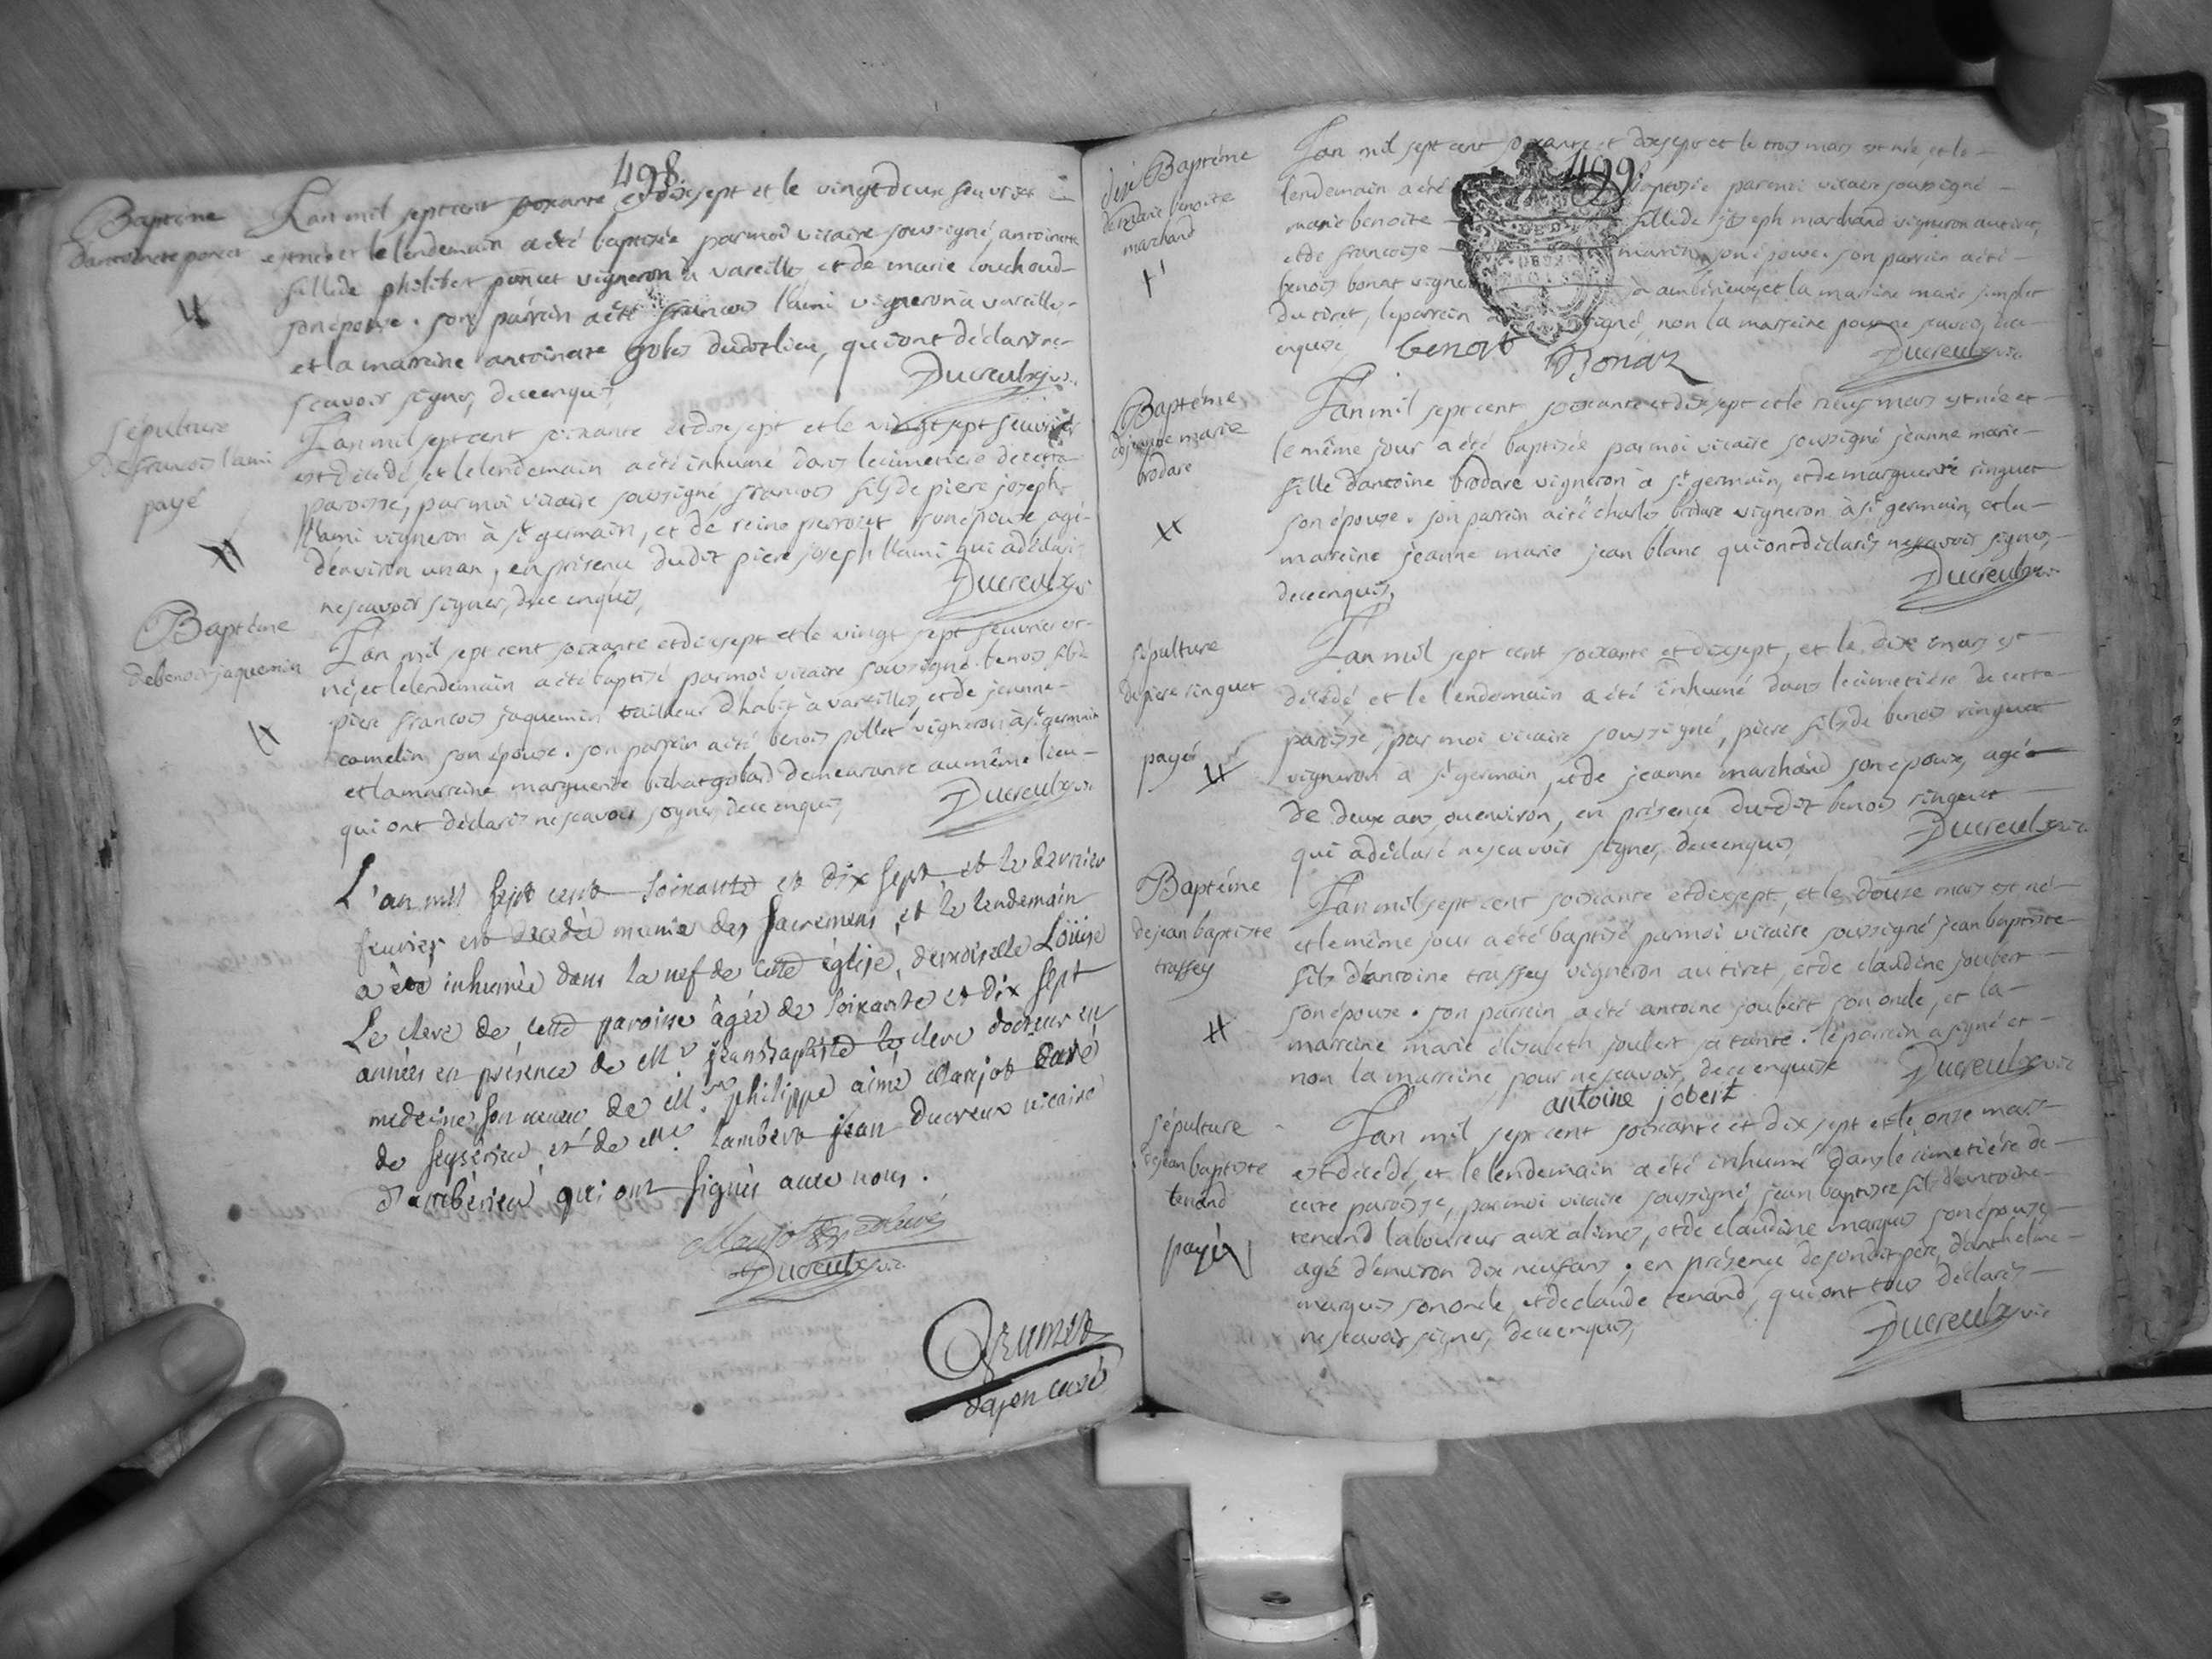 498
Baptéme
d'antoinete poncet
L'an mil sept cent soixante et dixsept et le vingt deux feuvrier
est née et le lendemain a été baptisée par moi vicaire soussigné, antoinete
fille de philibert poncet vigneron à vareilles et de marie couchoud
son épouse. son parrein a été francois l'ami vigneron à vareilles
et la marreine antoinete dudit lieu, qui ont déclarés ne
scavoir signer, de ce enquis,
Ducreulx vic.
sépulture
de francois l'ami
payé
L'an mil sept cent soixante et dixsept et le vingt sept feuvrier
est décédé, et le lendemain a été inhumé dans le cimetiere de cette
paroisse, par moi vicaire soussigné francois fils de piere joseph
l'ami vigneron à st germain, et de reine perrouet son épouse agé
d'environ un an, en présence dudit piere joseph l'ami qui a déclaré
ne scavoir signer, de ce enquis,
Ducreulx v
Baptéme
de benois jaquemin
L'an mil sept cent soixante et dixsept et le vingt sept feuvrier est
né, et le lendemain a été baptisé par moi vicaire soussigné benois fils de
piere francois jaquemin tailleur d'habit à vareilles, et de jeanne
camelin son épouse. son parrein a été benois pillet vigneron à st germain
et la marreine marguerite bichat demeurante au même lieu
qui ont déclarés ne scavoir signer, de ce enquis,
Ducreulx vic
L'an mil sept cent soixante et dix sept et le dernier
feuvrier est decedée munie des sacremens, et le lendemain
a été inhumée dans la nef de cette église, demoiselle Loüise
Le clerc de cette paroisse âgée de soixante et dix sept
années en présence de Mr jeanbaptiste le clerc docteur en
medecine son neveu de Mre philippe aimé Marjot curé
de seyserieu, et de Mre Lambert jean Ducreux vicaire
d'ambérieu qui ont signés avec nous.
Ducreulx vic.
curé
499
Baptéme
de marie benoite
marchand
L'an mil sept cent soixante et dixsept et le trois mars est née et le
lendemain a été baptisée par moi vicaire soussigné
marie benoite fille de joseph marchand vigneron au tiret,
et de francoise marrin son épouse. son parrein a été
benois bonat vigneron à ambérieux, et la marreine marie
du tiret, le parrein a signé, non la marreine pour ne scavoir, de ce
enquise
benort Bonaz
Ducreulx vic
Baptéme
de jeanne marie
brodare
L'an mil sept cent soixante et dixsept et le neuf mars est née et
le même jour a été baptisée par moi vicaire soussigné jeanne marie
fille d'antoine brodare vigneron à st germain, et de marguerite ringuet
son épouse. son parrein a été charles brodare vigneron à st germain, et la
marreine jeanne marie jean blanc qui ont déclarés ne scavoir signer,
de ce enquis,
Ducreulx vic
sépulture
de piere ringuet
payé
L'an mil sept cent soixante et dixsept, et le dixe mars est
décédé et le lendemain a été inhumé dans le cimetière de cette
paroisse, par moi vicaire soussigné, piere fils de benois ringuet
vigneron à st germain, et de jeanne marchand son épouse, agé
de deux ans, ou environ, en présence dudit benois ringuet
qui a déclaré ne scavoir signer, de ce enquis,
Ducreulx vic
Baptéme
de jean baptiste
traffey
L'an mil sept cent soixante et dixsept, et le douze mars est né
et le même jour a été baptisé par moi vicaire soussigné jean baptiste
fils d'antoine traffey vigneron au tiret, et de claudine joubert
son épouse. son parrein a été antoine joubert son oncle, et la
marreine marie élisabeth joubert sa tante. le parrein a signé et
non la marreine pour ne scavoir, de ce enquise
Ducreulx vic
antoine jobert
sépulture
de jean baptiste
tenand
payé
L'an mil sept cent soixante et dix sept et le onze mars
est décédé, et le lendemain a été inhumé dans le cimetiére de
cette paroisse, par moi vicaire soussigné, jean baptiste fils d'antoine
tenand laboureur aux alimes, et de claudine marquis son épouse
agé d'environ dix neuf ans. en présence de son dit père, d'anthelme
marquis son oncle, et de claude tenand, qui ont tous déclarés
ne scavoir signer, de ce enquis,
Ducreulx vic